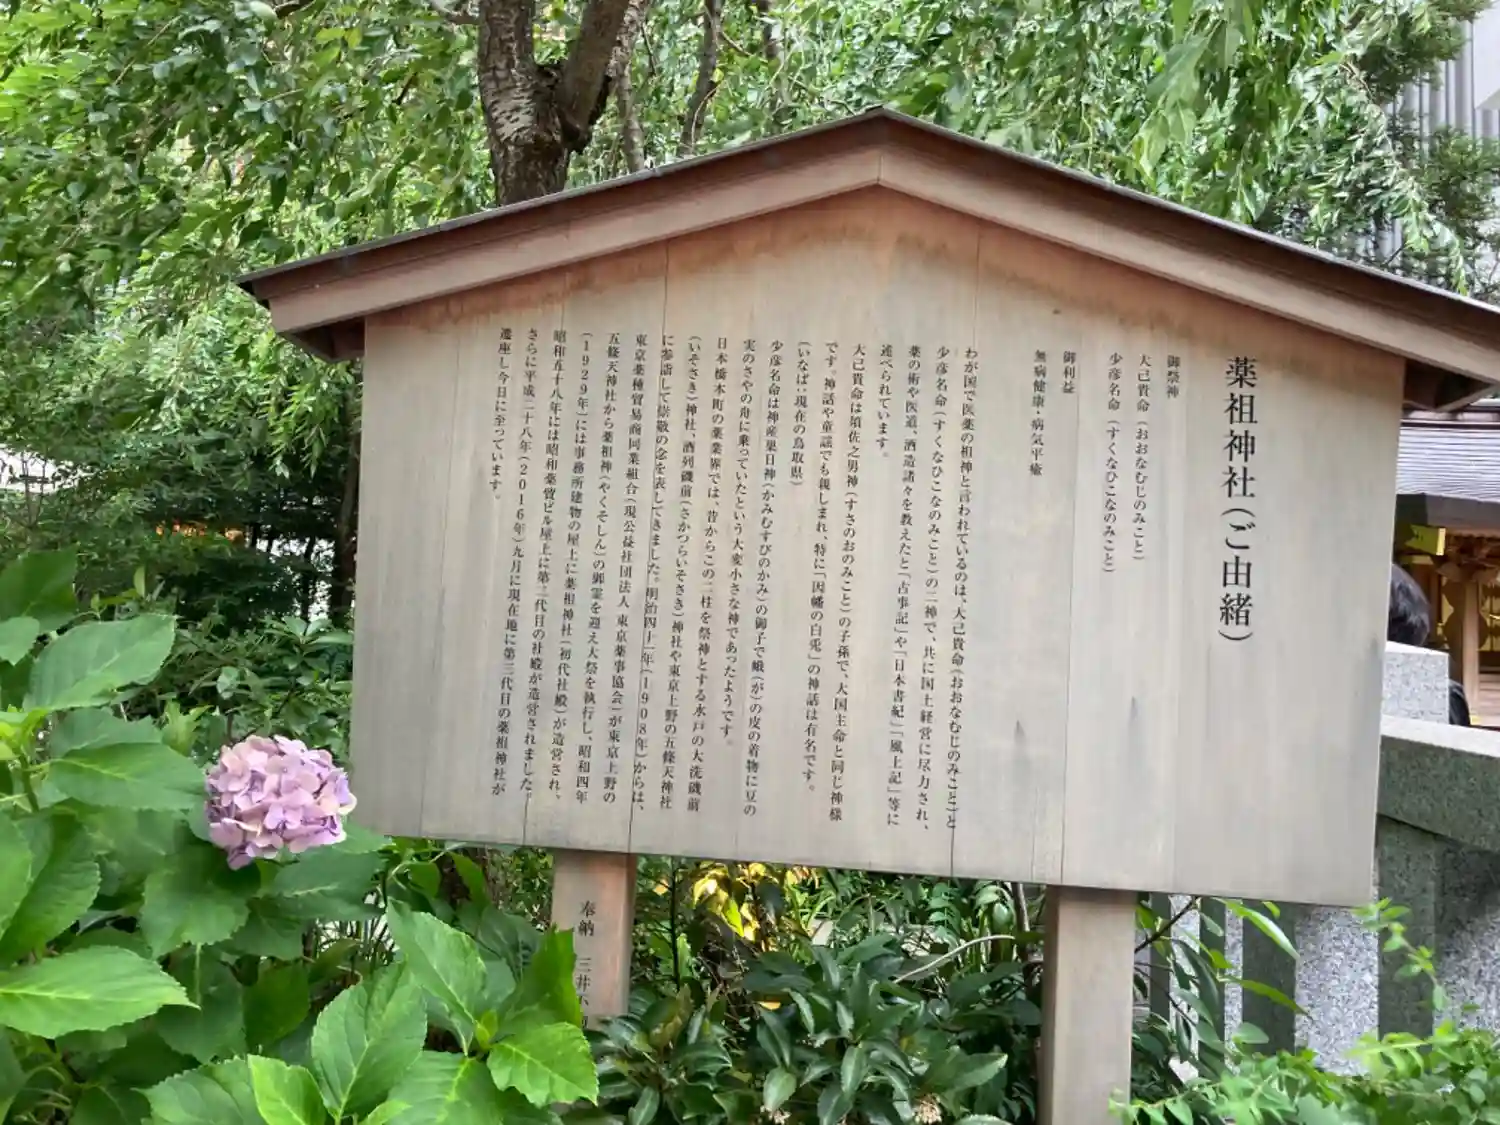 薬祖神社(ご由緒)
御祭神
大己貴命(おおなむじのみこと)
少彦名命(すくなひこなのみこと)
御利益
無病健康・病気平癒
わが国で医薬の祖神と言われているのは、大己貴命(おおなむじのみこと)と
少彦名命(すくなひこなのみこと)の二神で、共に国土経営に尽力され、
薬の術や医道、酒造諸々を教えたと「古事記」や「日本書紀」「風土記」等に
述べられています。
大己貴命は須佐之男神(すさのおのみこと)の子孫で、大国主命と同じ神様
です。神話や童謡でも親しまれ、特に「因幡の白兎」の神話は有名です。
(いなば:現在の鳥取県)
少彦名命は神産巣日神(かみむすびのかみ)の御子で蛾(が)の皮の着物に豆の
実のさやの舟に乗っていたという大変小さな神であったようです。
日本橋本町の薬業界では、昔からこの二柱を祭神とする水戸の大洗磯前
(いそさき)神社、酒列磯前(さかつらいそさき)神社や東京上野の五條天神社
に参詣して崇敬の念を表してきました。明治四十一年(1908年)からは、
東京薬種貿易商同業組合(現公益社団法人 東京薬事協会)が東京上野の
五條天神社から薬祖神(やくそしん)の御霊を迎え大祭を執行し、昭和四年
(1929年)には事務所建物の屋上に薬祖神社(初代社殿)が造営され、
昭和五十八年には昭和薬貿ビル屋上に第二代目の社殿が造営されました。
さらに平成二十八年(2016年)九月に現在地に第三代目の薬祖神社が
遷座し今日に至っています。
奉納 三井不